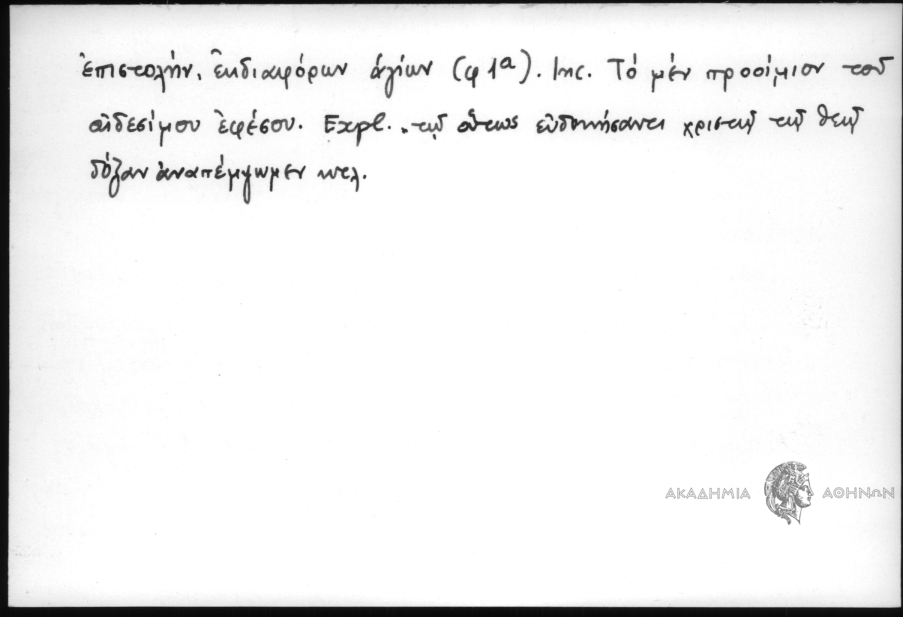 ἐπιστολήν, ἐκδιαφόρων ἁγίων (φ 1α). Inc. Τό μέν προοίμιον τοῦ
αἰδεσίμου ἐφέσου. Expl. .. τῷ οὕτως εὐδοκήσαντι χριστῷ τῷ θεῷ
δόξαν ἀναπέμψωμεν κτλ.
ΑΚΑΔΗΜΙΑ ΑΘΗΝΩΝ